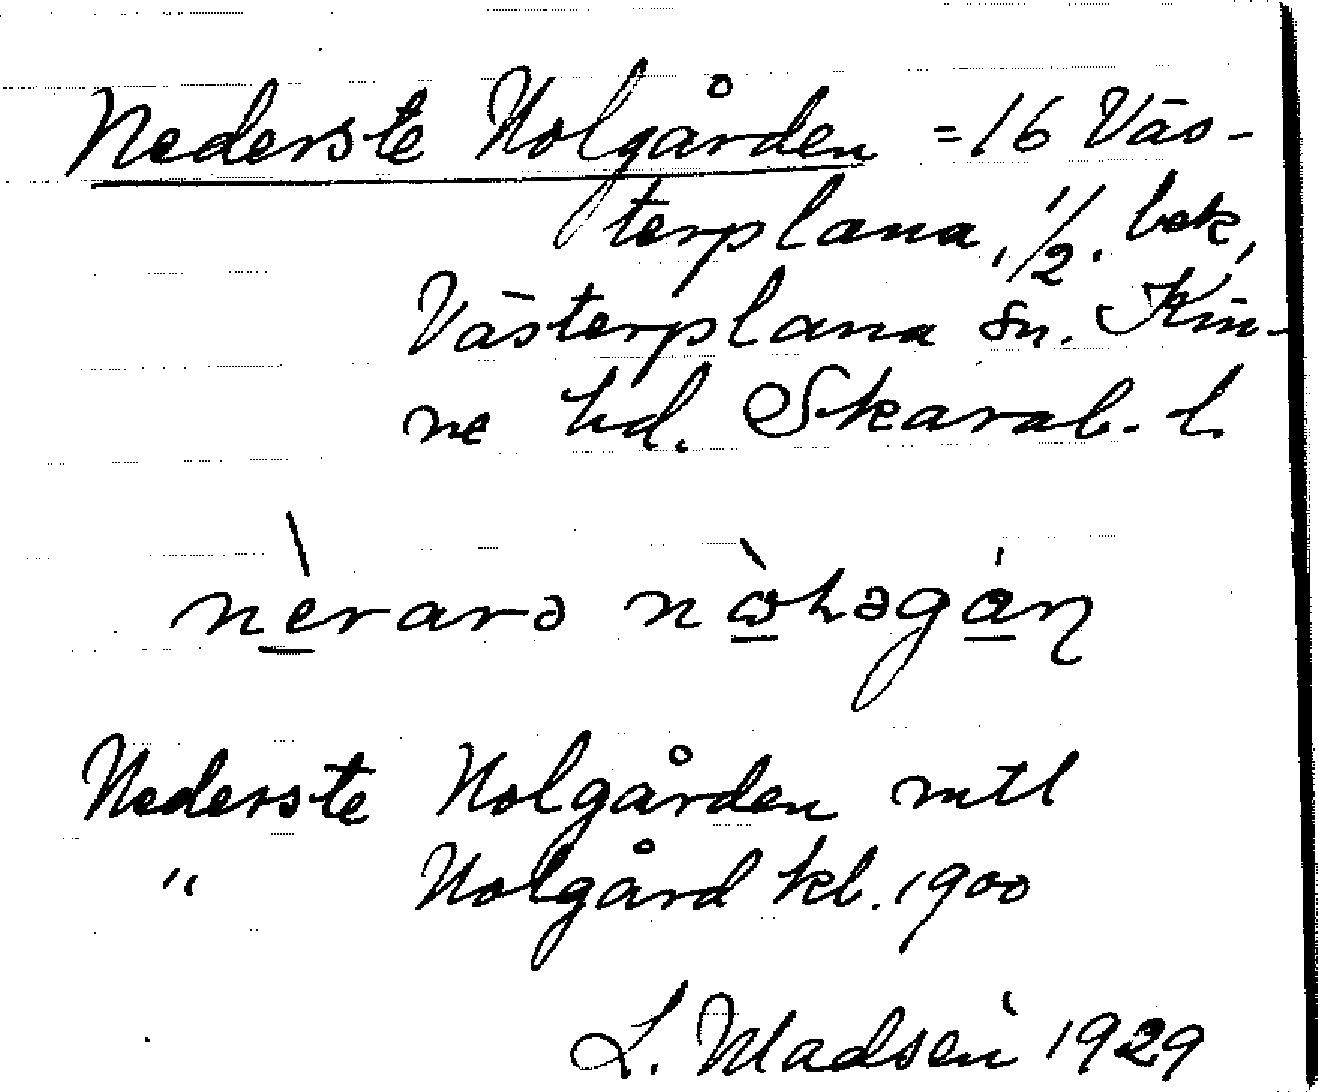 Nederste Nolgården = 16 Väs-
terplana, 1/2. bek,
Västerplana sn. Kin-
ne hd. Skarab. l.
nèrarə nòⱨəgán
Nederste Nolgården mtl
" Nolgård kb. 1900
L. Madsén 1929